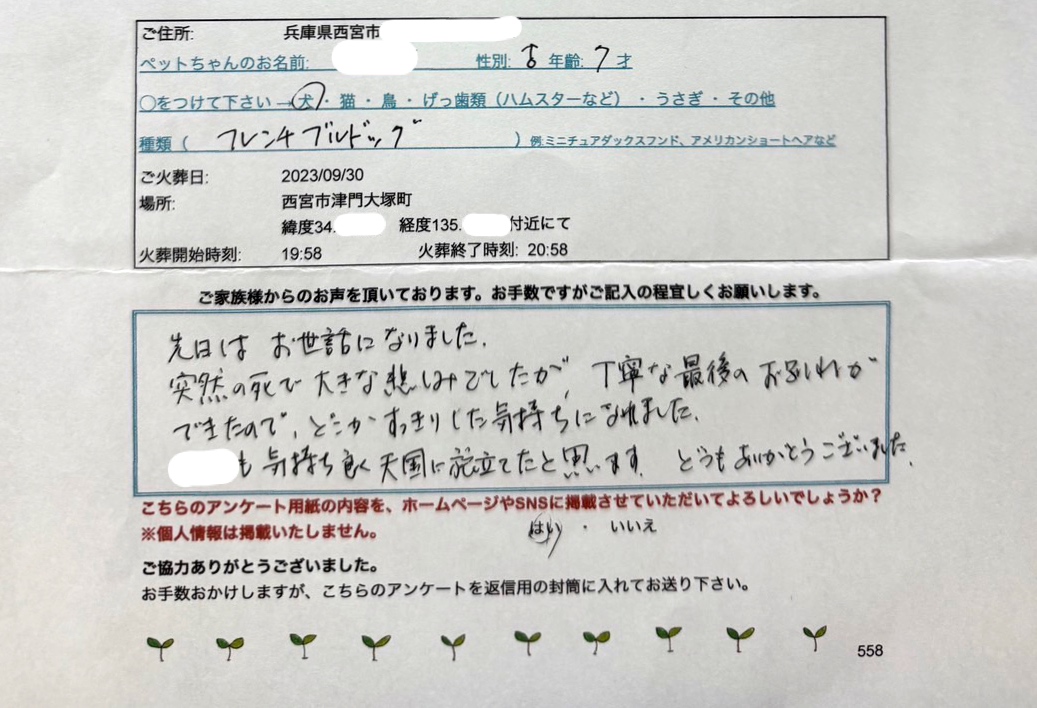 ご住所: 兵庫県西宮市
ペットちゃんのお名前: 性別: ♂ 年齢: 7 才
○をつけて下さい→犬・猫・鳥・げっ歯類（ハムスターなど）・うさぎ・その他
種類（ フレンチブルドッグ ）例:ミニチュアダックスフンド、アメリカンショートヘアなど
ご火葬日: 2023/09/30
場所: 西宮市津門大塚町
緯度34. 経度135. 付近にて
火葬開始時刻: 19:58 火葬終了時刻: 20:58
ご家族様からのお声を頂いております。お手数ですがご記入の程宜しくお願いします。
先日は お世話になりました.
突然の死で 大きな悲しみでしたが, 丁寧な最後の お別れが
できたので, どこかすっきりした気持ちになれました.
も 気持ち良く 天国に旅立てたと思います. どうもありがとうございました.
こちらのアンケート用紙の内容を、ホームページやSNSに掲載させていただいてよろしいでしょうか？
※個人情報は掲載いたしません。 はい ・ いいえ
ご協力ありがとうございました。
お手数おかけしますが、こちらのアンケートを返信用の封筒に入れてお送り下さい。
558